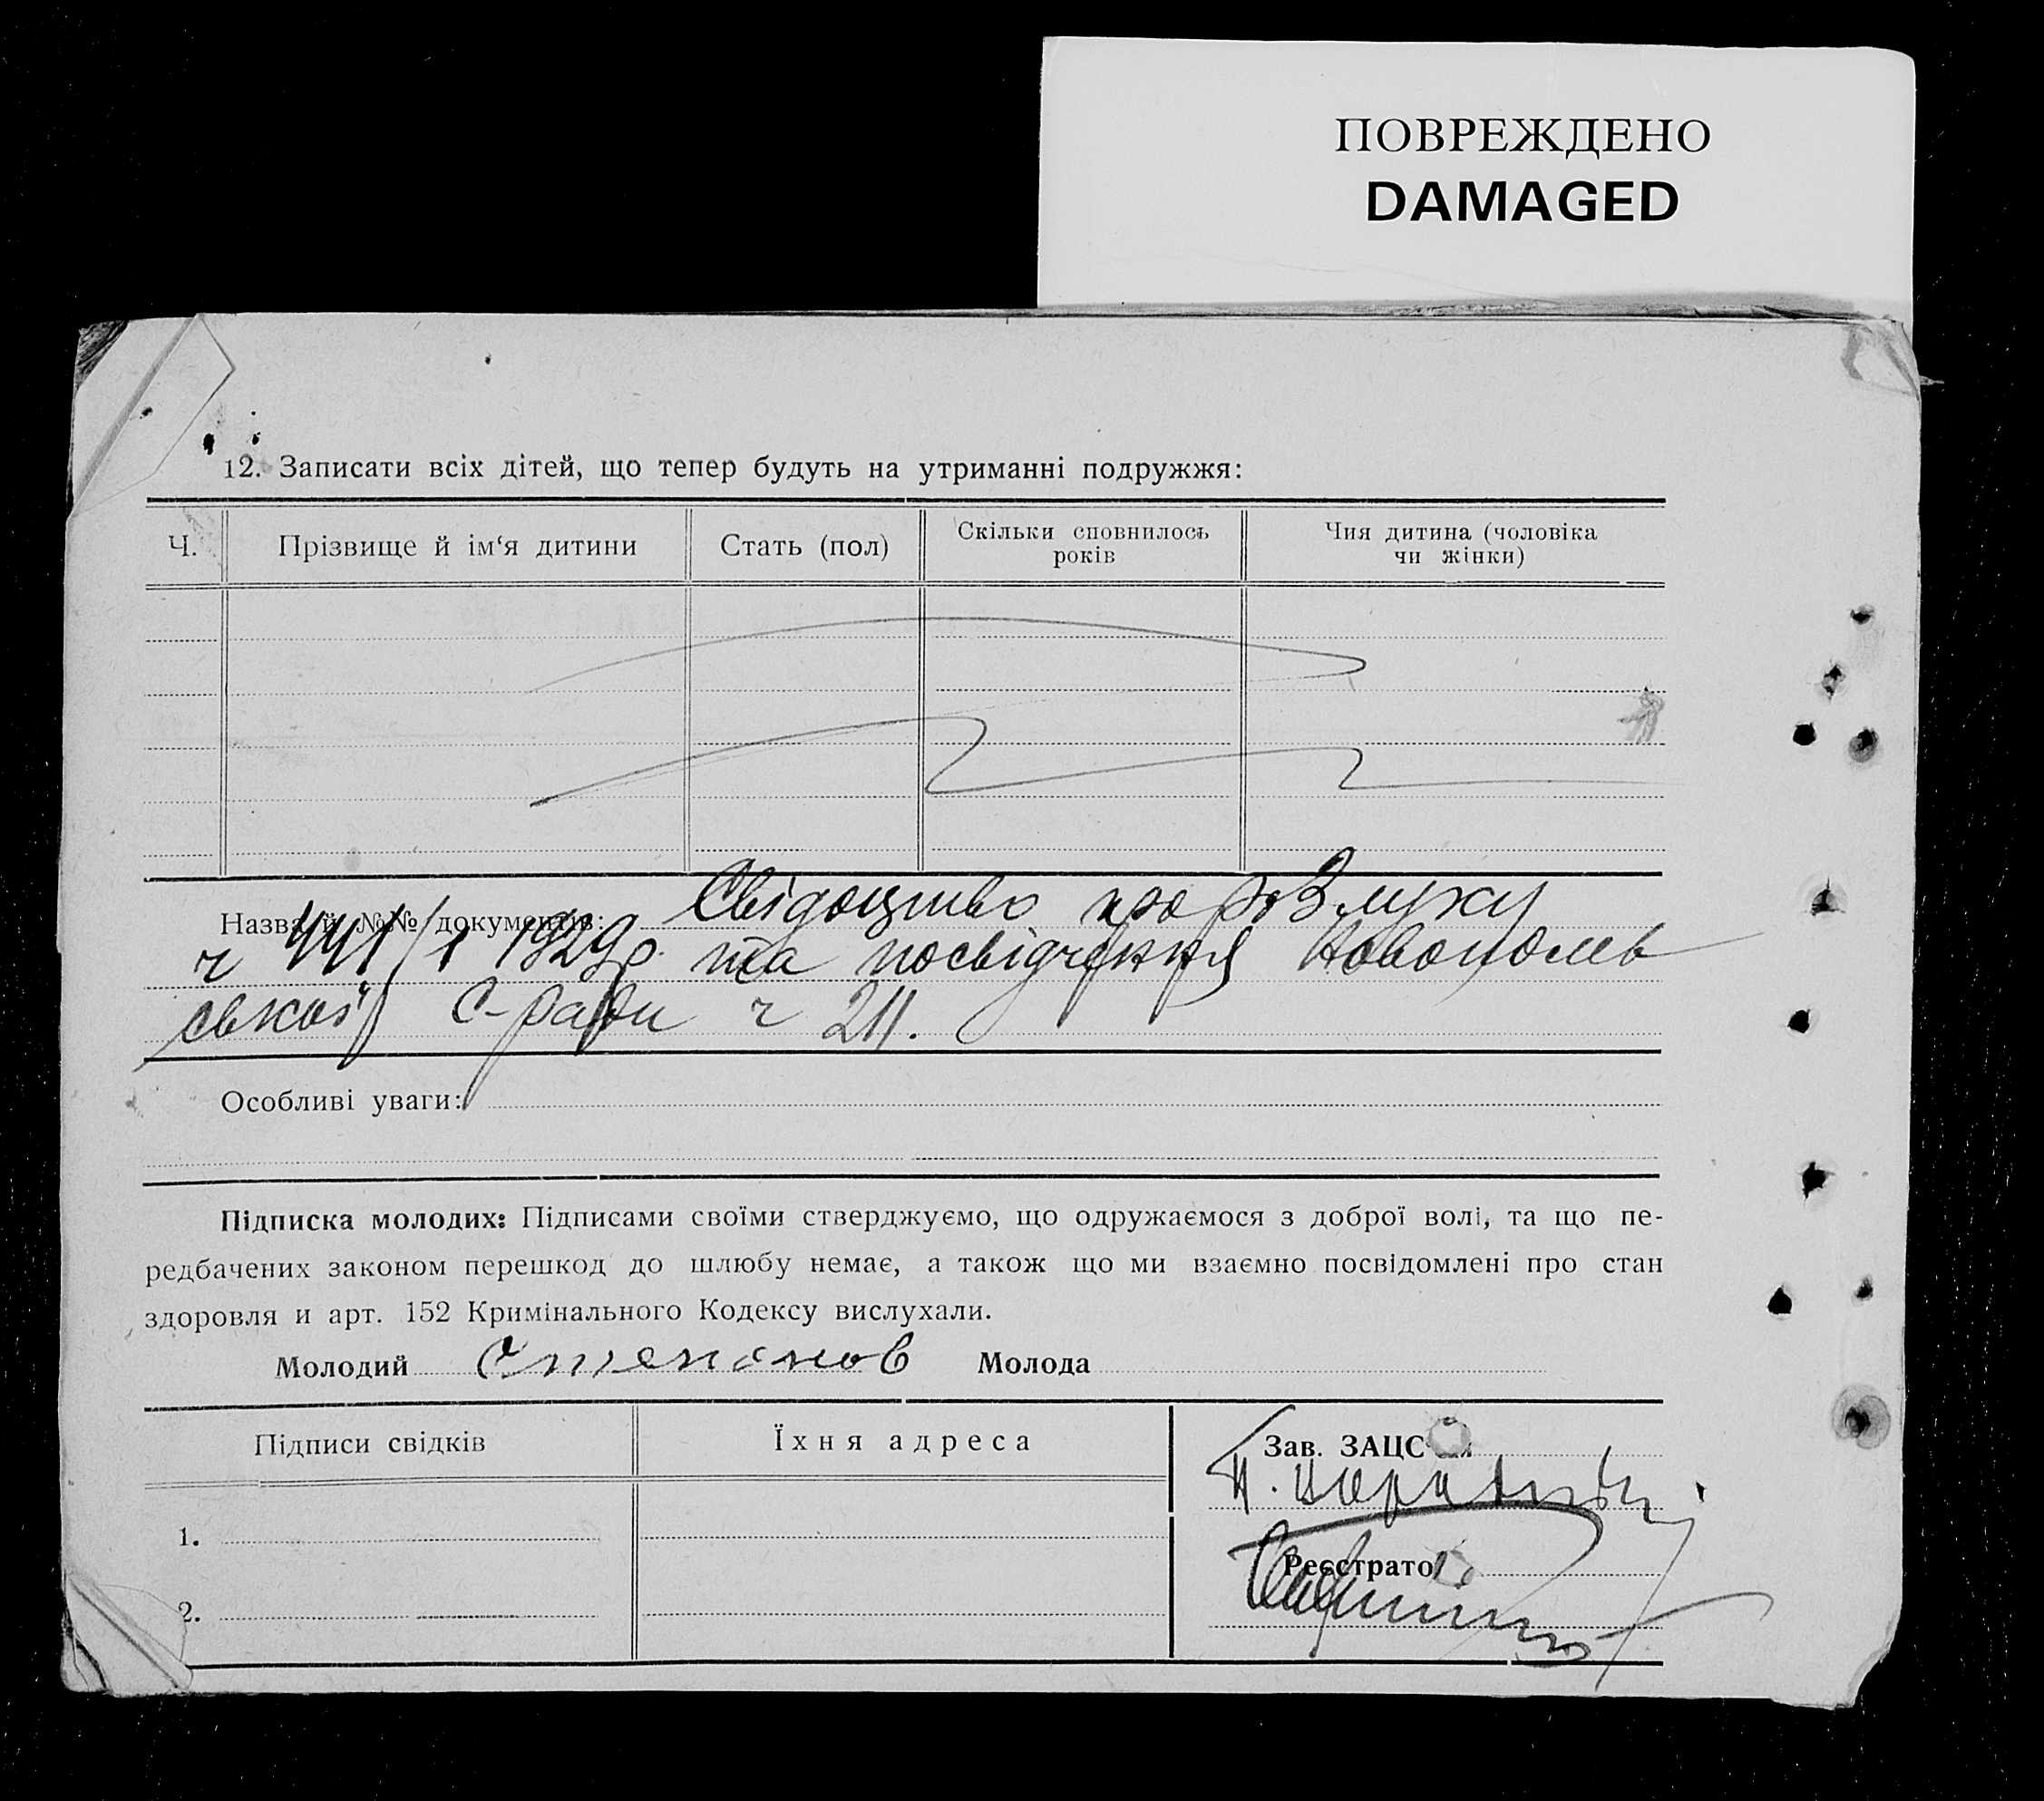 ПОВРЕЖДЕНО
DAMAGED
12. Записати всіх дітей, що тепер будуть на утриманні подружжя:
Ч. Прізвище й ім‘я дитини Стать (пол) Скільки сповнилось років Чия дитина (чоловіка чи жінки)
Назва й №№ документів: Свідоцтво про розлуку
ч 441/1 1929 р. та посвідчення Новополев
ської с-ради ч 211.
Особливі уваги:
Підписка молодих: Підписами своїми стверджуємо, що одружаємося з доброї волі, та що пе-
редбачених законом перешкод до шлюбу немає, а також що ми взаємно посвідомлені про стан
здоровля и арт. 152 Кримінального Кодексу вислухали.
Молодий Степанов Молода
Підписи свідків Їхня адреса Зав. ЗАЦС
1.
Реєстрато
2.